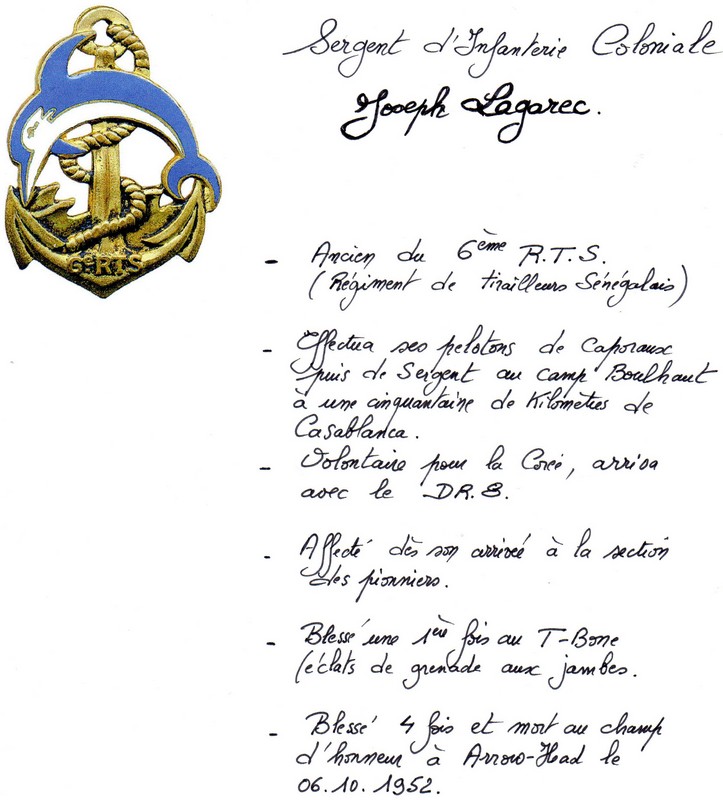 Sergent d'Infanterie Coloniale
Joseph Lagarec.
6e R.T.S
- Ancien du 6ème R.T.S.
(Régiment de tirailleurs Sénégalais)
- Effectua ses pelotons de Caporaux
puis de Sergent au camp Boulhaut
à une cinquantaine de Kilomètres de
Casablanca.
- Volontaire pour la Corée, arriva
avec le DR.8.
- Affecté dès son arrivée à la section
des pionniers.
- Blessé une 1ère fois au T-Bone
(éclats de grenade aux jambes.
- Blessé 4 fois et mort au champ
d'honneur à Arrow-Head le
06.10.1952.